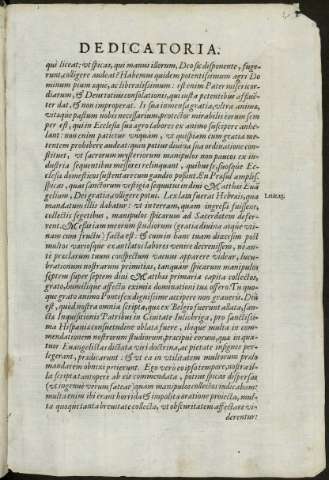 DEDICATORIA.
qui liceat; vt spicas, qui manus illorum, Deo sic disponente, fuge-
runt, colligere audeat? Habemus quidem potentissimum agri Do
minum pium atque, ac liberalissimum: est enim Pater misericor-
diarum, & Deus totius consolationis, qui iusta petentibus affluẽ-
ter dat, & non improperat. Is sua inmensa gratia, vltra animo,
vitaque passum nobis necessarium, protector mirabilis eorum sem
per est, qui in Ecclesia sua agro labores ex animo suscipere anhe-
lant: non enim patietur vnquam, vt quispiam cum gratia me-
tentem prohibere audeat: quin potius diuina sua ordinatione con-
stituet, vt sacrorum mysteriorum manipulos non paucos ex in-
dustria sequentibus messores relinquant, quibus se, suosque Ec-
clesiæ domesticos sustentare cum gaudio possint. En Præsul ampliss.
spicas, quas sanctorum vestigia sequutus in diui Matthæi Euã
gelium, Dei gratia colligere potui. Lex lata fuerat Hebræis, qua
mandatum illis dabatur: vt in terram, quam ingressi fuissent,
collectis segetibus, manipulos spicarum ad Sacerdotem defer-
rent. Messis iam meorum studiorum (gratia diuina atque viri-
nam cum fructu) facta est: & cum in hanc tuam diœcesim post
multos variosque exantlatos labores venire decreuissem, ne an-
te præclarum tuum conspectum vacuus apparere videar, lucu-
brationum nostrarum primitias, tanquam spicarum manipulos
septem super septem diui Matthæi primaria capita collectos,
grato, humilique affectu eximiæ dominationi tuæ offero. Tu quo-
que grato animo Pontifex dignissime accipere non graueris. Diu
est, quod nostra omnia scripta, quæ ex Belgio fuerunt allata, san-
ctæ Inquisitionis Patribus in Ciuitate Iulobriga, pro sanctissi-
ma Hispaniæ consuetudine oblata fuere, ibique multa in com-
mendationem nostrorum studiorum, præcipuè eorum, quæ in qua-
tuor Euangelistas dictata viri doctrina, ac pietate insignes per-
legerant, prædicarunt: & vt ea in vtilitatem multorum prælo
mandarem obnixè petierunt. Ego verò eo ipso tempore, nostra il-
la scripta tantopere ab eis commendata, potius spicas dispersas
(vt ingenuè verum fatear) quàm manipulos collectos indicabam:
multa enim ibi erant horrida & impolita oratione proiecta, mul-
ta quoque tanta breuitate collecta, vt obscuritatem affectare vi-
derentur:
Leuit. 23.